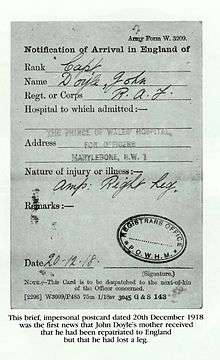 Army Form W. 3209.
Notification of Arrival in England of
Rank Capt
Name Doyle, John
Regt. or Corps R.A.F.
Hospital to which admitted :—
THE PRINCE OF WALES' HOSPITAL,
FOR OFFICERS
Address
MARYLEBONE, N.W. 1
Nature of injury or illness :—
Amp. Right Leg.
Remarks :—
REGISTRARS OFFICE
P.O.W.H.M.
Date 20-12-18.
(Signature.)
NOTE.—This Card is to be despatched to the next-of-kin
of the Officer concerned.
[2296] W3009/P485 75m 1/18 3045 G & S 143
This brief, impersonal postcard dated 20th December 1918
was the first news that John Doyle's mother received
that he had been repatriated to England
but that he had lost a leg.